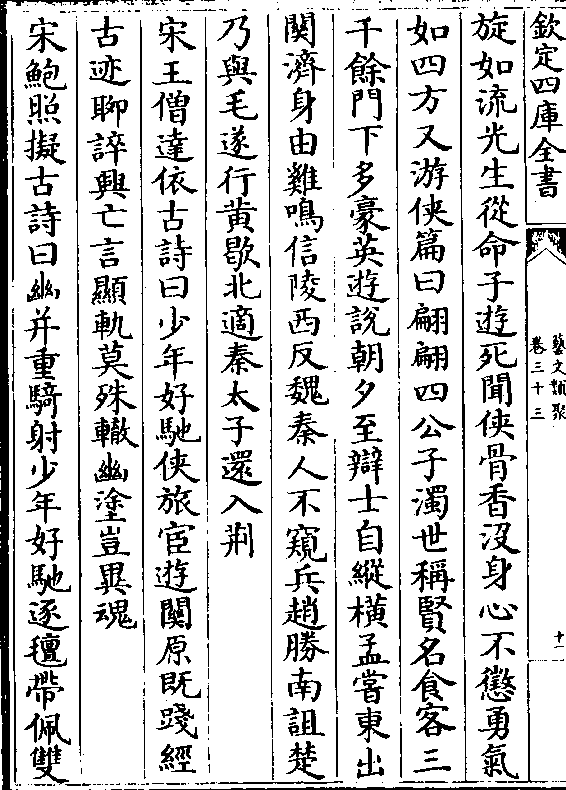 欽定四庫全書
藝文類聚
卷三十三
十一
旋如流光生從命子遊死聞俠骨香沒身心不懲勇氣
如四方又游俠篇曰翩翩四公子濁世稱賢名食客三
千餘門下多豪英遊說朝夕至辯士自縱橫孟嘗東出
關濟身由雞鳴信陵西反魏秦人不窺兵趙勝南詛楚
乃與毛遂行黃歇北適秦太子還入荆
宋王僧達依古詩曰少年好馳俠旅宦遊關原既踐經
古迹聊誶興亡言顯軌莫殊轍幽塗豈異魂
宋鮑照擬古詩曰幽并重騎射少年好馳逐氊帶佩雙